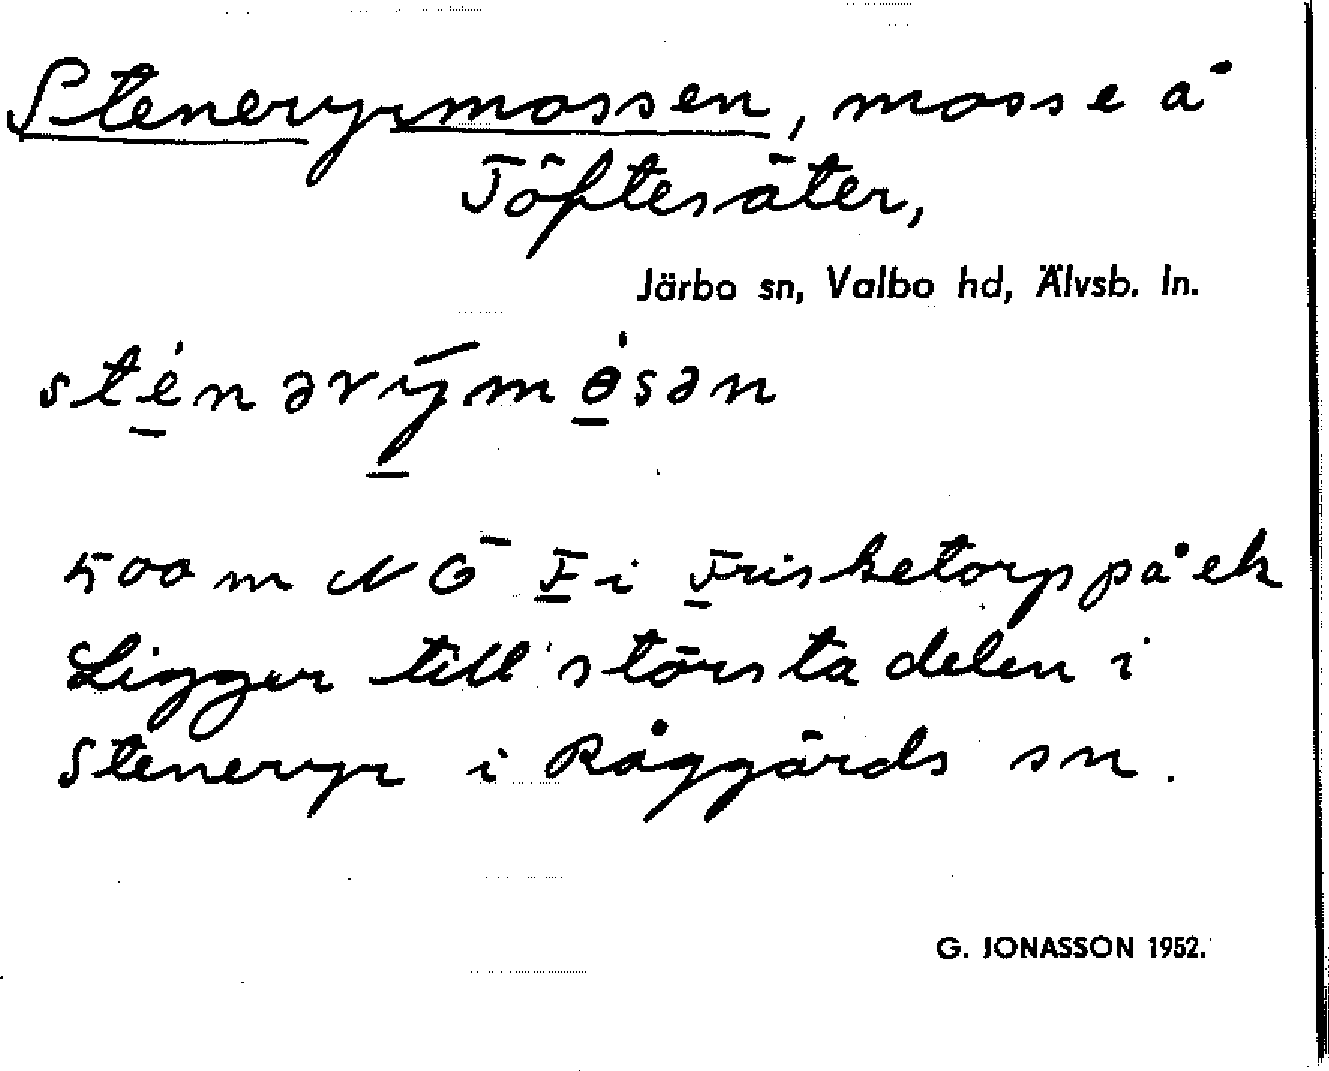 Steneryrmossen, mosse å
Töftesäter,
Järbo sn, Valbo hd, Älvsb. ln.
sténərýmòsən
500 m NÖ F i Frisketorp på ek
Ligger till största delen i
Steneryr i Råggärds sn.
G. JONASSON 1952.